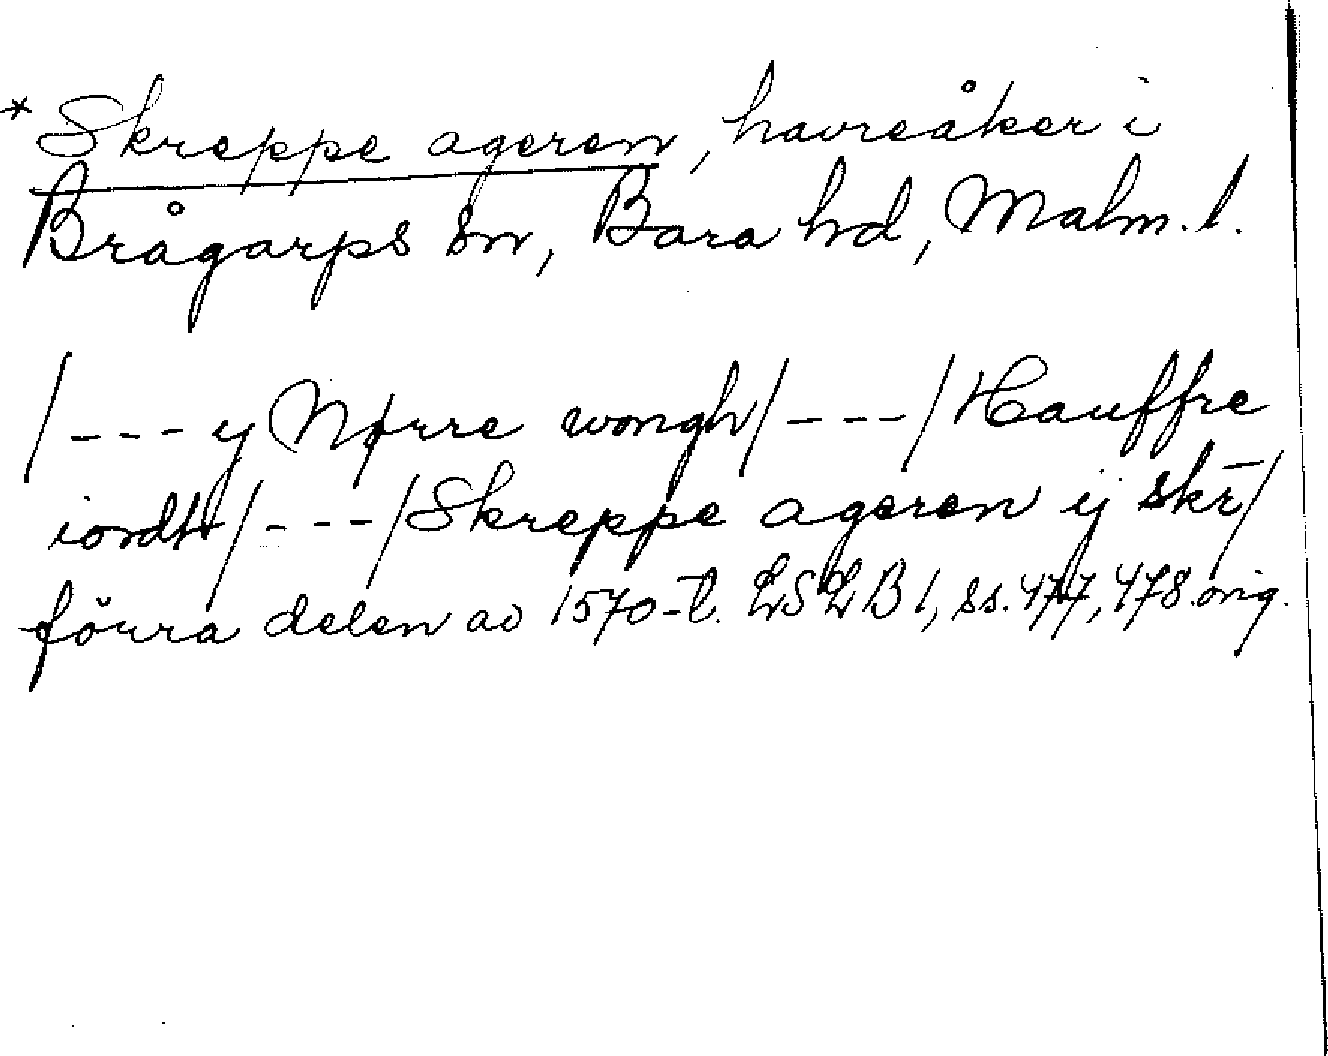 * Skreppe ageren, havreåker i
Brågarps sn, Bara hd, Malm. l.
/--- y Nørre wongh/---/Hauffre
iordt/---/Skreppe ageren ij skr̄/
förra delen av 1570-t. LSLB 1, ss. 477, 478. orig.